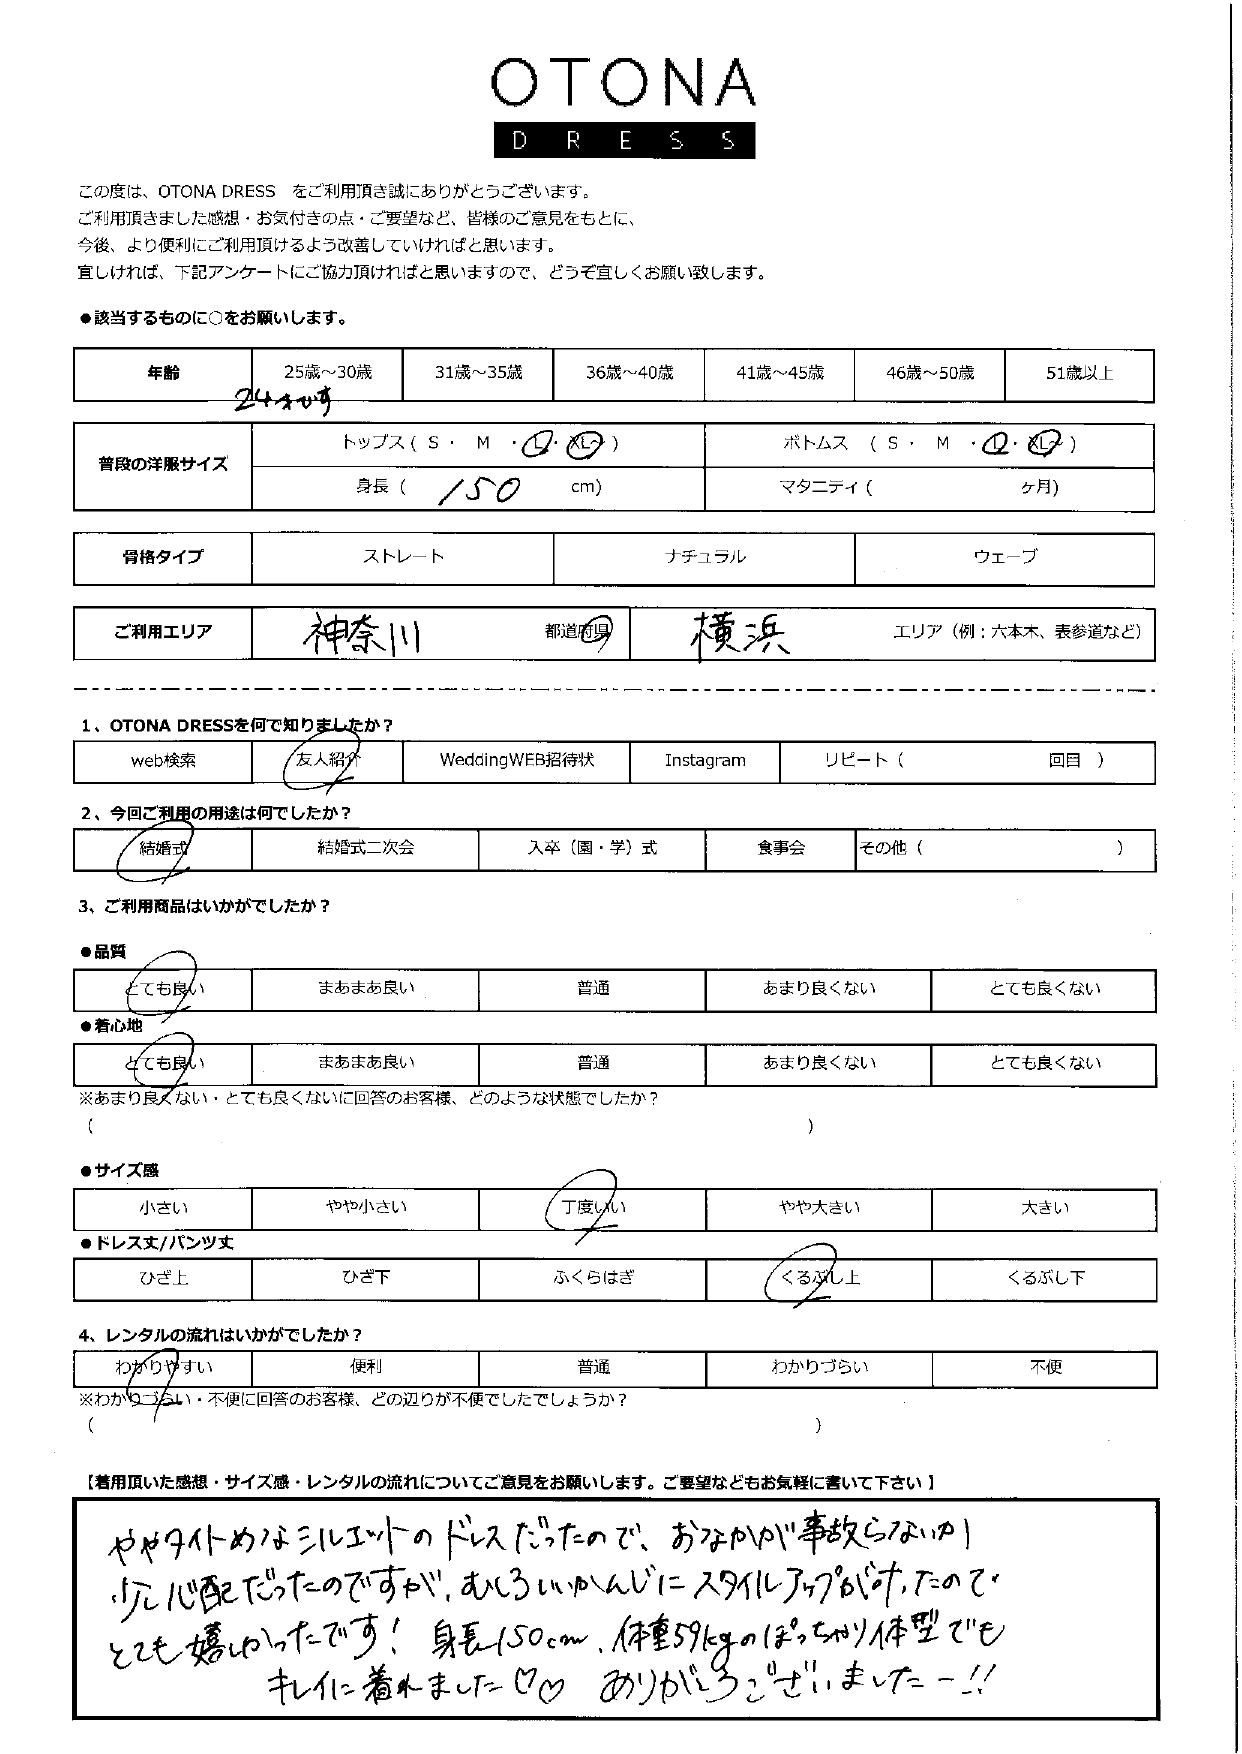 OTONA
DRESS
この度は、OTONA DRESS　をご利用頂き誠にありがとうございます。
ご利用頂きました感想・お気付きの点・ご要望など、皆様のご意見をもとに、
今後、より便利にご利用頂けるよう改善していければと思います。
宜しければ、下記アンケートにご協力頂ければと思いますので、どうぞ宜しくお願い致します。
●該当するものに○をお願いします。
年齢 25歳～30歳 31歳～35歳 36歳～40歳 41歳～45歳 46歳～50歳 51歳以上
24才です
普段の洋服サイズ トップス ( S ・ M ・ L ・ XL～ ) ボトムス ( S ・ M ・ L ・ XL～ )
身長 ( 150 cm) マタニティ ( ヶ月)
骨格タイプ ストレート ナチュラル ウェーブ
ご利用エリア 神奈川 都道府県 横浜 エリア（例：六本木、表参道など）
1、OTONA DRESSを何で知りましたか？
web検索 友人紹介 WeddingWEB招待状 Instagram リピート（ 回目 ）
2、今回ご利用の用途は何でしたか？
結婚式 結婚式二次会 入卒（園・学）式 食事会 その他（ ）
3、ご利用商品はいかがでしたか？
●品質
とても良い まあまあ良い 普通 あまり良くない とても良くない
●着心地
とても良い まあまあ良い 普通 あまり良くない とても良くない
※あまり良くない・とても良くないに回答のお客様、どのような状態でしたか？
( )
●サイズ感
小さい やや小さい 丁度いい やや大きい 大きい
●ドレス丈/パンツ丈
ひざ上 ひざ下 ふくらはぎ くるぶし上 くるぶし下
4、レンタルの流れはいかがでしたか？
わかりやすい 便利 普通 わかりづらい 不便
※わかりづらい・不便に回答のお客様、どの辺りが不便でしたでしょうか？
( )
【着用頂いた感想・サイズ感・レンタルの流れについてご意見をお願いします。ご要望などもお気軽に書いて下さい 】
ややタイトめなシルエットのドレスだったので、おなかが事故らないか
少し心配だったのですが、むしろいいかんじにスタイルアップが叶ったので
とても嬉しかったです！ 身長150cm、体重59kgのぽっちゃり体型でも
キレイに着れました♡♡ ありがとうございましたー!!